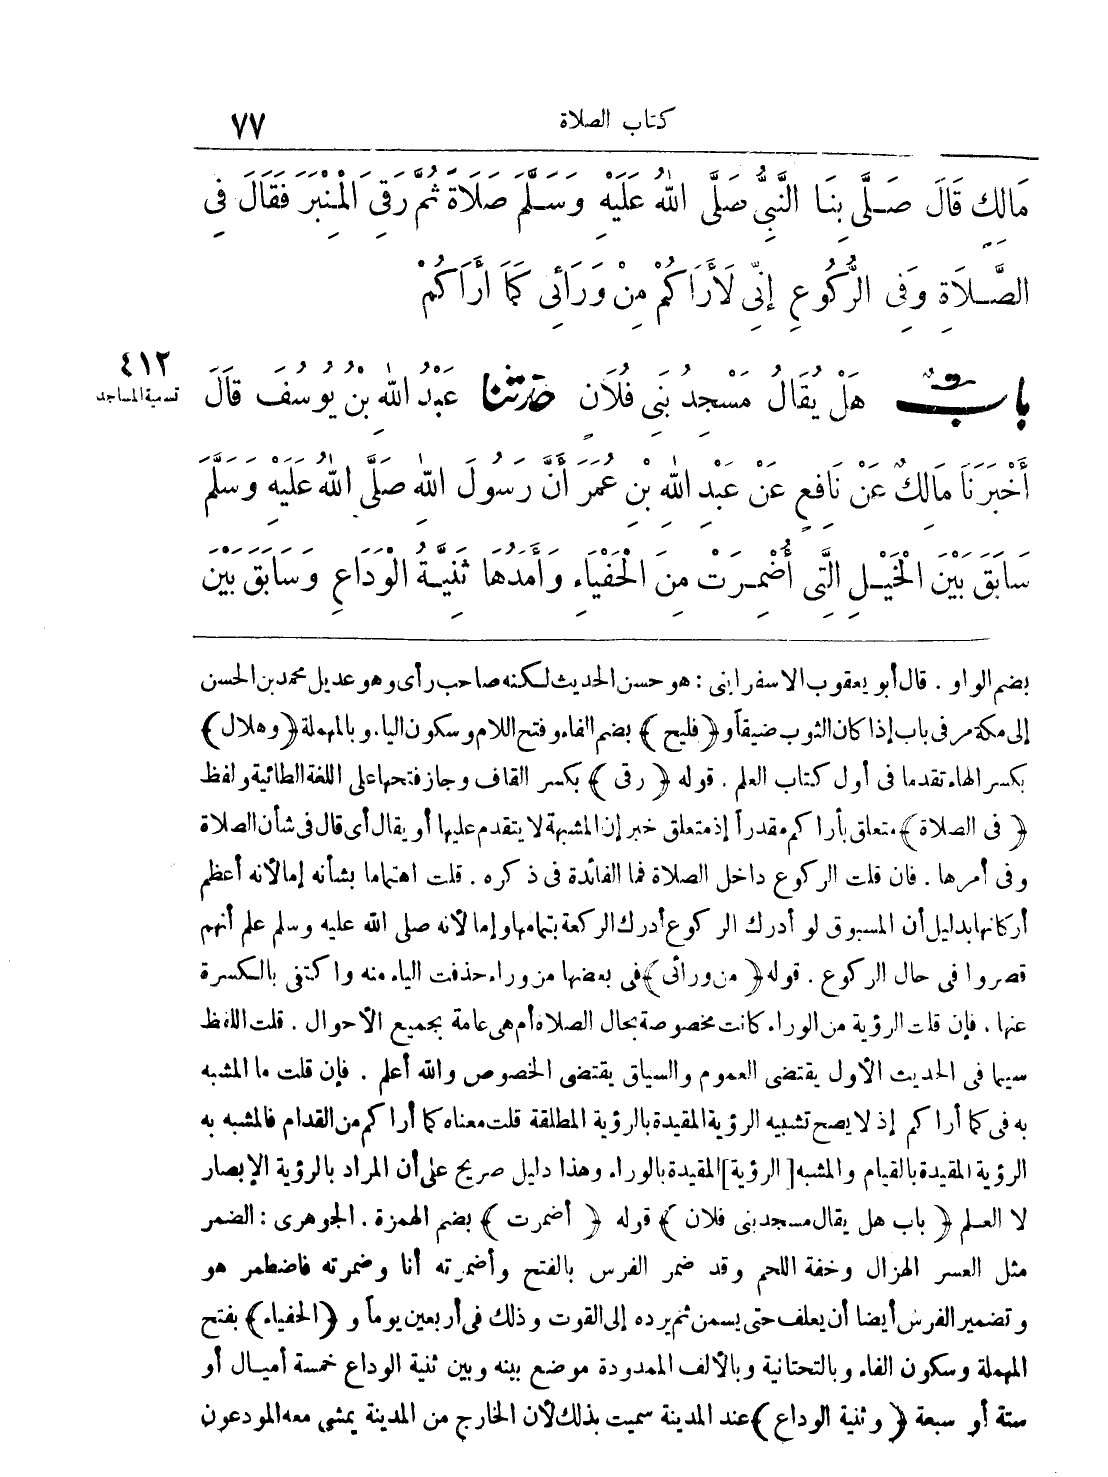 كتاب الصلاة ٧٧
مَالِكٍ قَالَ صَلَّى بِنَا النَّبِيُّ صَلَّى اللهُ عَلَيْهِ وَسَلَّمَ صَلَاةً ثُمَّ رَقِىَ الْمِنْبَرَ فَقَالَ فِى
الصَّلَاةِ وَفِى الرُّكُوعِ إِنِّى لَأَرَاكُمْ مِنْ وَرَائِى كَمَا أَرَاكُمْ
٤١٢
تسمية المساجد
بابٌ هَلْ يُقَالُ مَسْجِدُ بَنِى فُلَانٍ حدثنا عَبْدُ اللهِ بْنُ يُوسُفَ قَالَ
أَخْبَرَنَا مَالِكٌ عَنْ نَافِعٍ عَنْ عَبْدِ اللهِ بْنِ عُمَرَ أَنَّ رَسُولَ اللهِ صَلَّى اللهُ عَلَيْهِ وَسَلَّمَ
سَابَقَ بَيْنَ الْخَيْلِ الَّتِى أُضْمِرَتْ مِنَ الْحَفْيَاءِ وَأَمَدُهَا ثَنِيَّةُ الْوَدَاعِ وَسَابَقَ بَيْنَ
بضم الواو . قال أبو يعقوب الاسفراينى : هو حسن الحديث لكنه صاحب رأى وهو عديل محمد بن الحسن
إلى مكة مر فى باب إذا كان الثوب ضيقاً و﴿فليح﴾ بضم الفاء وفتح اللام وسكون الياء وبالمهملة ﴿وهلال﴾
بكسر الهاء تقدما فى أول كتاب العلم . قوله ﴿رقى﴾ بكسر القاف وجاز فتحها على اللغة الطائية ولفظ
﴿فى الصلاة﴾ متعلق بأراكم مقدراً إذ متعلق خبر إن المشبهة لا يتقدم عليها أو يقال أى قال فى شأن الصلاة
وفى أمرها . فان قلت الركوع داخل الصلاة فما الفائدة فى ذكره . قلت اهتماما بشأنه إما لأنه أعظم
أركانها بدليل أن المسبوق لو أدرك الركوع أدرك الركعة بتمامها وإما لأنه صلى الله عليه وسلم علم أنهم
قصروا فى حال الركوع . قوله ﴿من ورائى﴾ فى بعضها من وراء حذفت الياء منه واكتفى بالكسرة
عنها . فإن قلت الرؤية من الوراء كانت مخصوصة بحال الصلاة أم هى عامة بجميع الأحوال . قلت اللفظ
سيما فى الحديث الأول يقتضى العموم والسياق يقتضى الخصوص والله أعلم . فإن قلت ما المشبه
به فى كما أراكم إذ لا يصح تشبيه الرؤية المقيدة بالرؤية المطلقة قلت معناه كما أراكم من القدام فالمشبه به
الرؤية المقيدة بالقيام والمشبه [الرؤية] المقيدة بالوراء وهذا دليل صريح على أن المراد بالرؤية الإبصار
لا العلم ﴿باب هل يقال مسجد بنى فلان﴾ قوله ﴿أضمرت﴾ بضم الهمزة . الجوهرى : الضمر
مثل العسر الهزال وخفة اللحم وقد ضمر الفرس بالفتح وأضمرته أنا وضمرته فاضطمر هو
وتضمير الفرس أيضا أن يعلف حتى يسمن ثم يرده إلى القوت وذلك فى أربعين يوماً و ﴿الحفياء﴾ بفتح
المهملة وسكون الفاء وبالتحتانية وبالألف الممدودة موضع بينه وبين ثنية الوداع خمسة أميال أو
ستة أو سبعة ﴿وثنية الوداع﴾ عند المدينة سميت بذلك لأن الخارج من المدينة يمشى معه المودعون